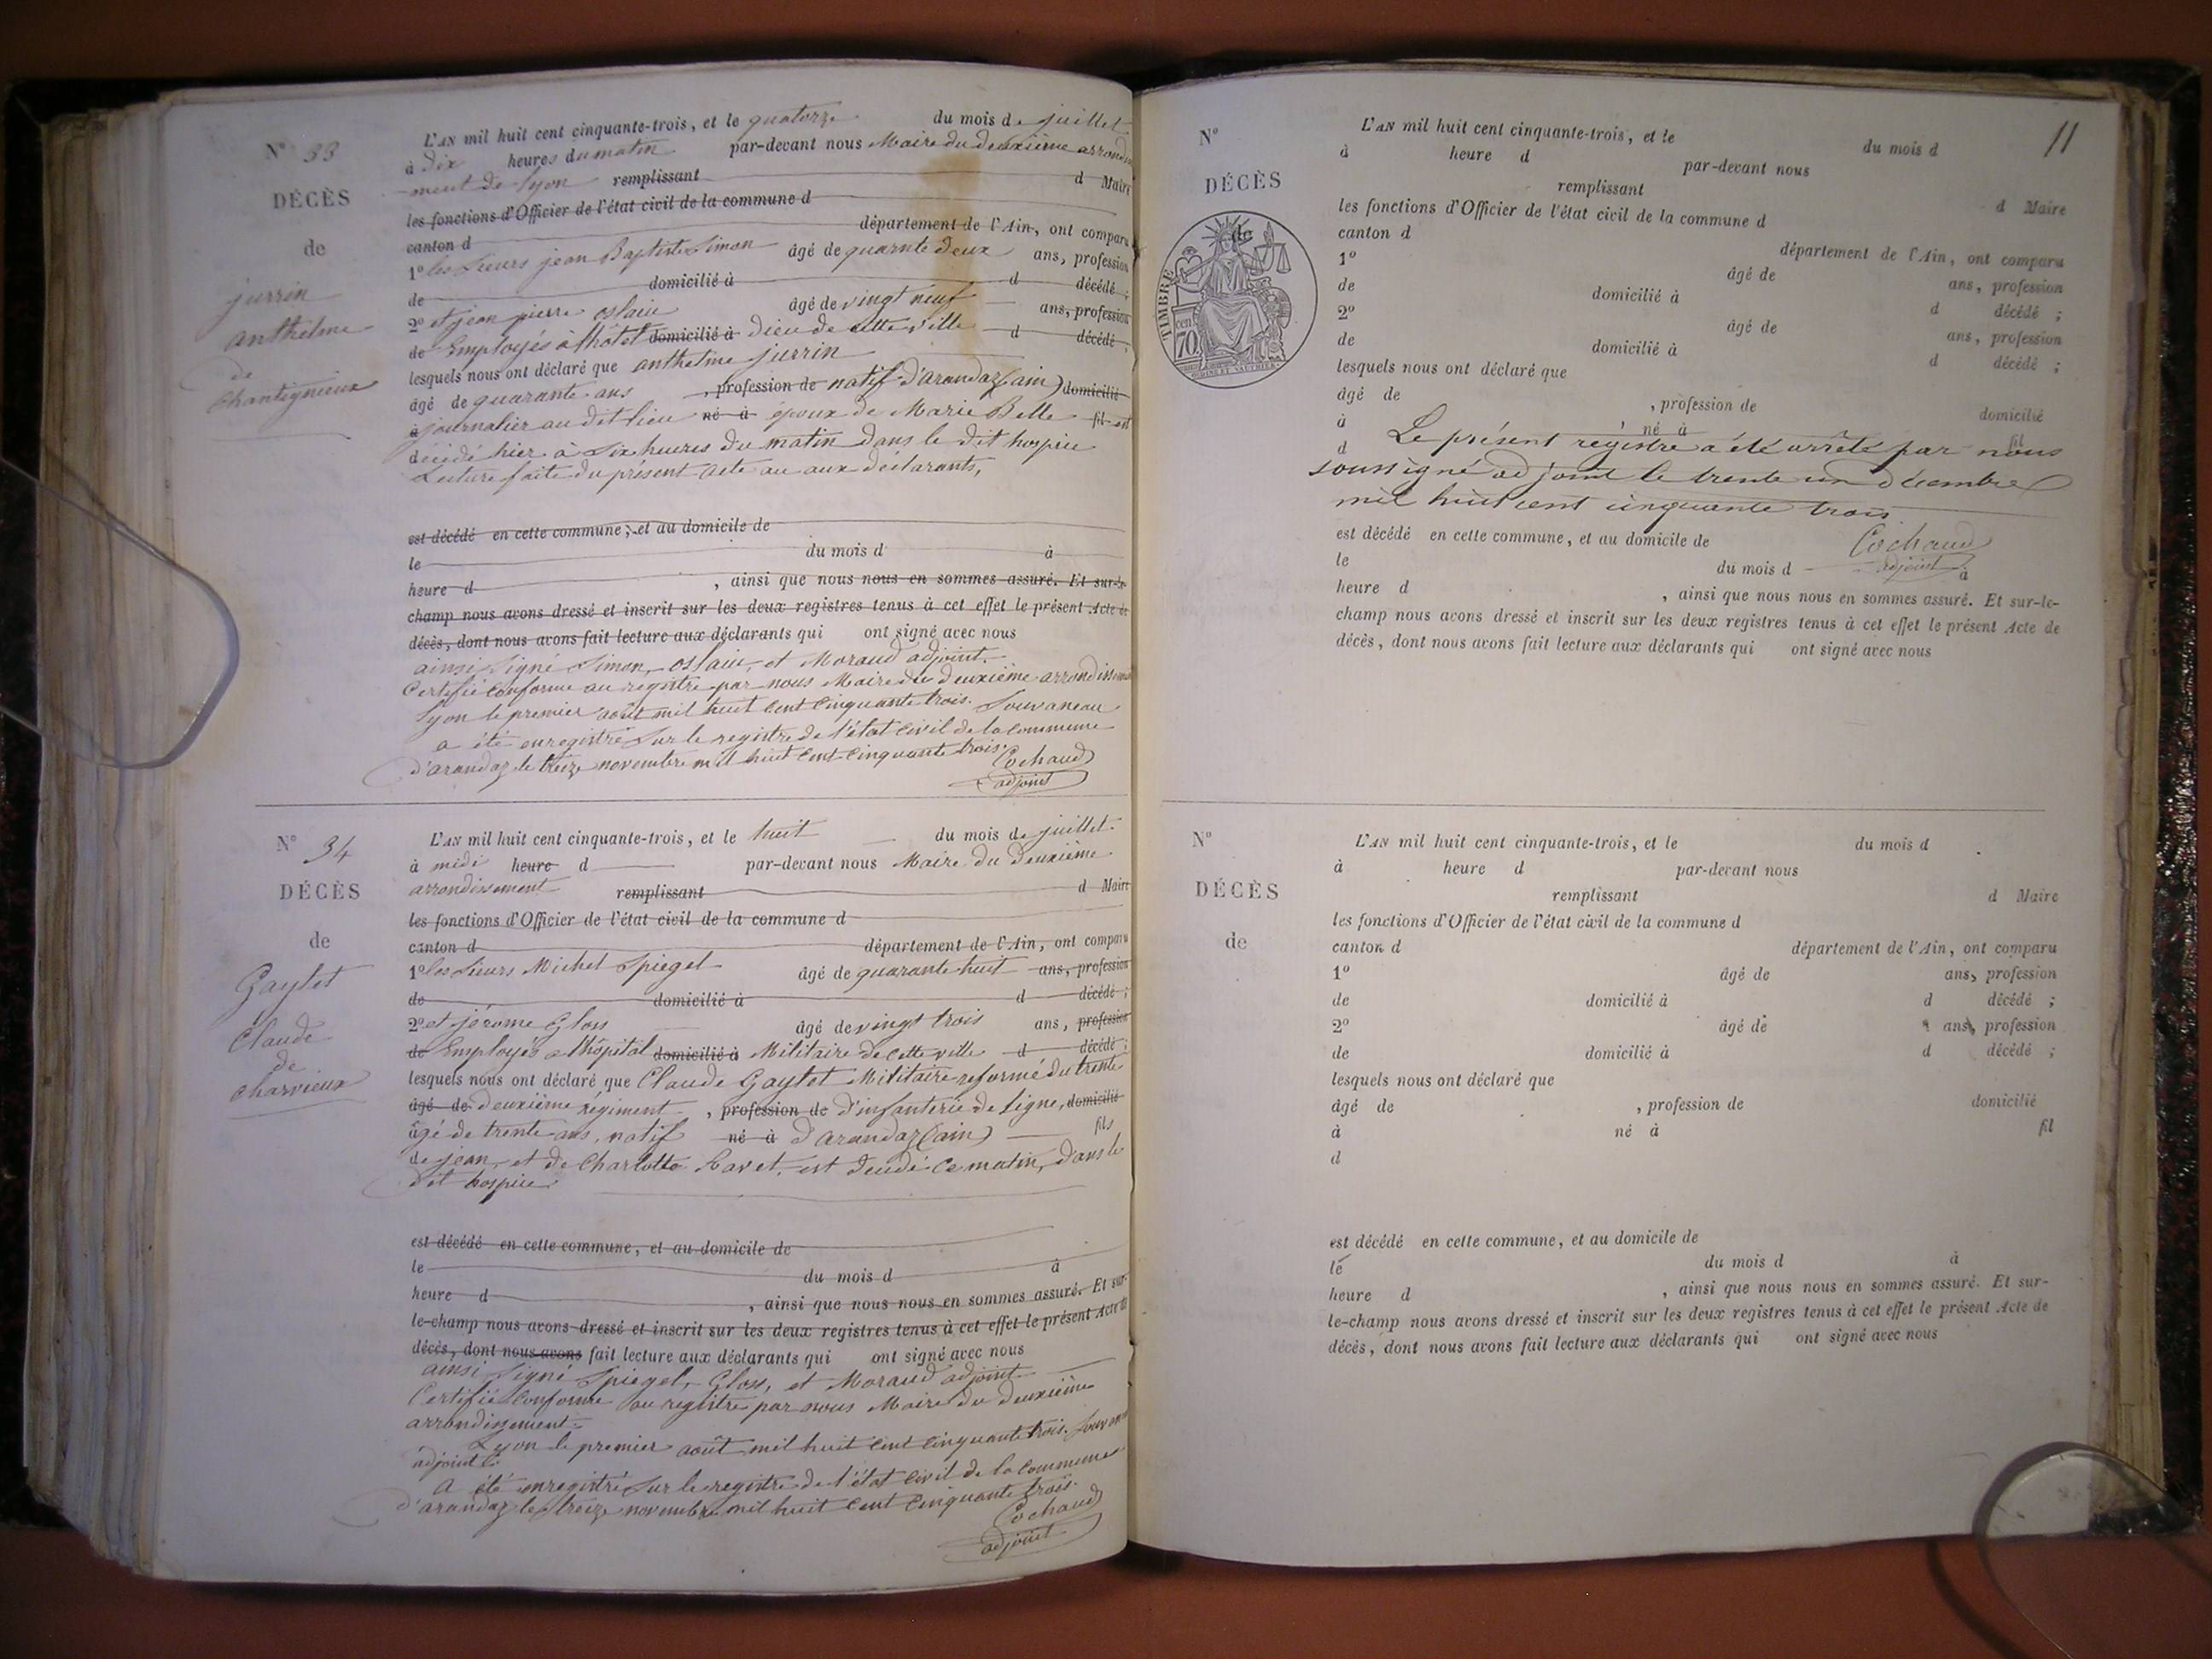 N° 33
DÉCÈS
de
jurrin
anthelme
de
Chantignieux
L'AN mil huit cent cinquante-trois, et le quatorze du mois de juillet
à dix heures du matin par-devant nous Maire du deuxième arrondis
-ment de Lyon remplissant d Maire
les fonctions d'Officier de l'état civil de la commune d
canton d département de l'Ain, ont comparu
1° les Sieurs jean Baptiste Simon âgé de quarante deux ans, profession
de domicilié à d décédé ;
2° et jean pierre âgé de vingt neuf ans, profession
de Employés à l'hôtel domicilié à Dieu de cette ville d décédé ;
lesquels nous ont déclaré que anthelme jurrin
âgé de quarante ans , profession de natif d'arandaz (ain) domicilié
à journalier au dit lieu né à époux de Marie Belle fil est
décédé hier à Six heures du matin dans le dit hospice
Lecture faite du présent acte au aux déclarants,
est décédé en cette commune, et au domicile de
le du mois d à
heure d , ainsi que nous nous en sommes assuré. Et sur-le-
champ nous avons dressé et inscrit sur les deux registres tenus à cet effet le présent Acte de
décès, dont nous avons fait lecture aux déclarants qui ont signé avec nous
ainsi Signé Simon, et Moraud adjoint.
Certifié conforme au registre par nous Maire du deuxième arrondissement
Lyon le premier août mil huit cent cinquante trois. Souvaneau
a été enregistré Sur le registre de l'état civil de la commune
d'arandaz le treize novembre mil huit cent cinquante trois.
Cochaud
adjoint
N° 34
DÉCÈS
de
Gaylet
Claude
de
charvieux
L'AN mil huit cent cinquante-trois, et le huit du mois de juillet
à midi heure d par-devant nous Maire du Deuxième
arrondissement remplissant d Maire
les fonctions d'Officier de l'état civil de la commune d
canton d département de l'Ain, ont comparu
1° les Sieurs Michel Spiegel âgé de quarante huit ans, profession
de domicilié à d décédé ;
2° et jérome Gloss âgé de vingt trois ans, profession
de Employés a l'hôpital domicilié à Militaire de cette ville d décédé ;
lesquels nous ont déclaré que Claude Gaytet Militaire reformé du trente
âgé de deuxième régiment , profession de d'infanterie de Ligne, domicilié
âgé de trente ans, natif né à D'arandaz (ain) fils
de jean, et de Charlotte, est décédé ce matin, dans le
dit hospice
est décédé en cette commune, et au domicile de
le du mois d à
heure d , ainsi que nous nous en sommes assuré. Et sur-
le-champ nous avons dressé et inscrit sur les deux registres tenus à cet effet le présent Acte de
décès, dont nous avons fait lecture aux déclarants qui ont signé avec nous
ainsi Signé Spiegel, Gloss, et Moraud adjoint
Certifié Conforme au registre par nous Maire du Deuxième
arrondissement.
Lyon le premier août mil huit cent cinquante trois.
adjoint
A été enregistré Sur le registre de l'état civil de la commune
d'arandaz le treize novembre mil huit cent cinquante trois.
Cochaud
adjoint
11
N°
DÉCÈS
de
TIMBRE
cen
70
L'AN mil huit cent cinquante-trois, et le du mois d
à heure d par-devant nous
remplissant d Maire
les fonctions d'Officier de l'état civil de la commune d
canton d département de l'Ain, ont comparu
1° âgé de ans, profession
de domicilié à d décédé ;
2° âgé de ans, profession
de domicilié à d décédé ;
lesquels nous ont déclaré que
âgé de , profession de domicilié
à né à fil
d Le présent registre a été arrêté par nous
soussigné adjoint le trente un décembre
mil huit cent cinquante trois
est décédé en cette commune, et au domicile de Cochaud
le du mois d adjoint à
heure d , ainsi que nous nous en sommes assuré. Et sur-le-
champ nous avons dressé et inscrit sur les deux registres tenus à cet effet le présent Acte de
décès, dont nous avons fait lecture aux déclarants qui ont signé avec nous
N°
DÉCÈS
de
L'AN mil huit cent cinquante-trois, et le du mois d
à heure d par-devant nous
remplissant d Maire
les fonctions d'Officier de l'état civil de la commune d
canton d département de l'Ain, ont comparu
1° âgé de ans, profession
de domicilié à d décédé ;
2° âgé de ans, profession
de domicilié à d décédé ;
lesquels nous ont déclaré que
âgé de , profession de domicilié
à né à fil
d
est décédé en cette commune, et au domicile de
le du mois d à
heure d , ainsi que nous nous en sommes assuré. Et sur-
le-champ nous avons dressé et inscrit sur les deux registres tenus à cet effet le présent Acte de
décès, dont nous avons fait lecture aux déclarants qui ont signé avec nous